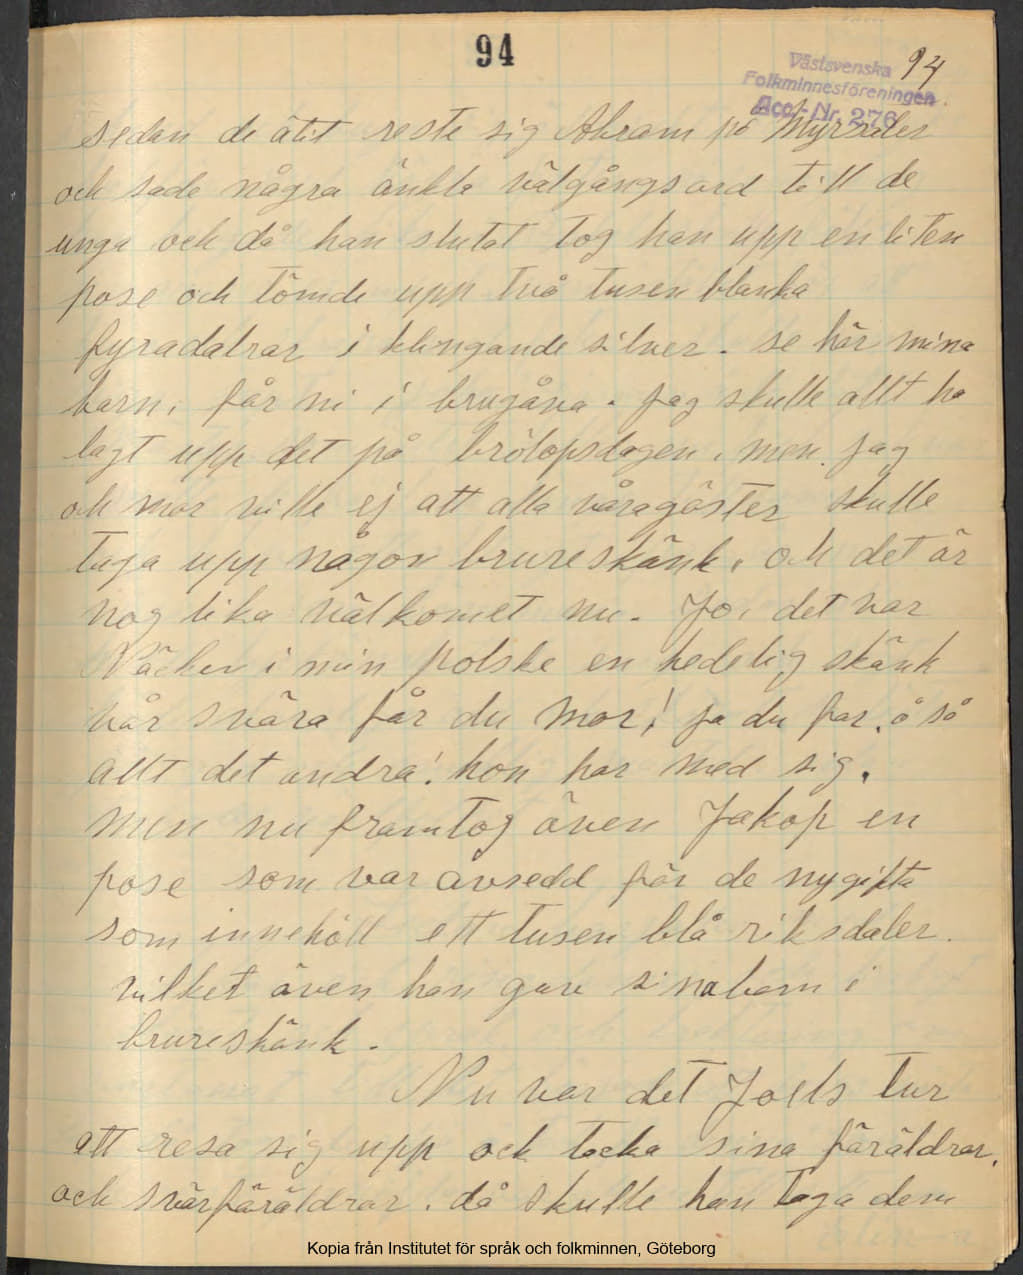 94
94
Västsvenska
Folkminnesföreningen
Acc.-Nr. 276
sedan de ätit reste sig Abram på Myrråler
och sade några änkla välgångsord till de
unga och då han slutat tog han upp en liten
pose och tömde upp två tusen blanka
fyradalrar i klingande silver. se här mina
barn, får ni i brugåva. Jag skulle allt ha
lagt upp det på brölopsdagen, men jag
och mor ville ej att alla våragäster skulle
taga upp någon brureskänk, och det är
nog lika välkomet nu. Jo, det var
Näcken i min polske en hedelig skänk
vår svära får du mor! ja du far. å så
allt det andra! hon har med sig.
Men nu framtog även Jakop en
pose som var avsedd för de nygifta
som innehöll ett tusen blå riksdaler.
vilket även han gav sinabarn i
brureskänk.
Nu var det Joels tur
att resa sig upp och tacka sina föräldrar,
och svärföräldrar. då skulle han taga dem
Kopia från Institutet för språk och folkminnen, Göteborg